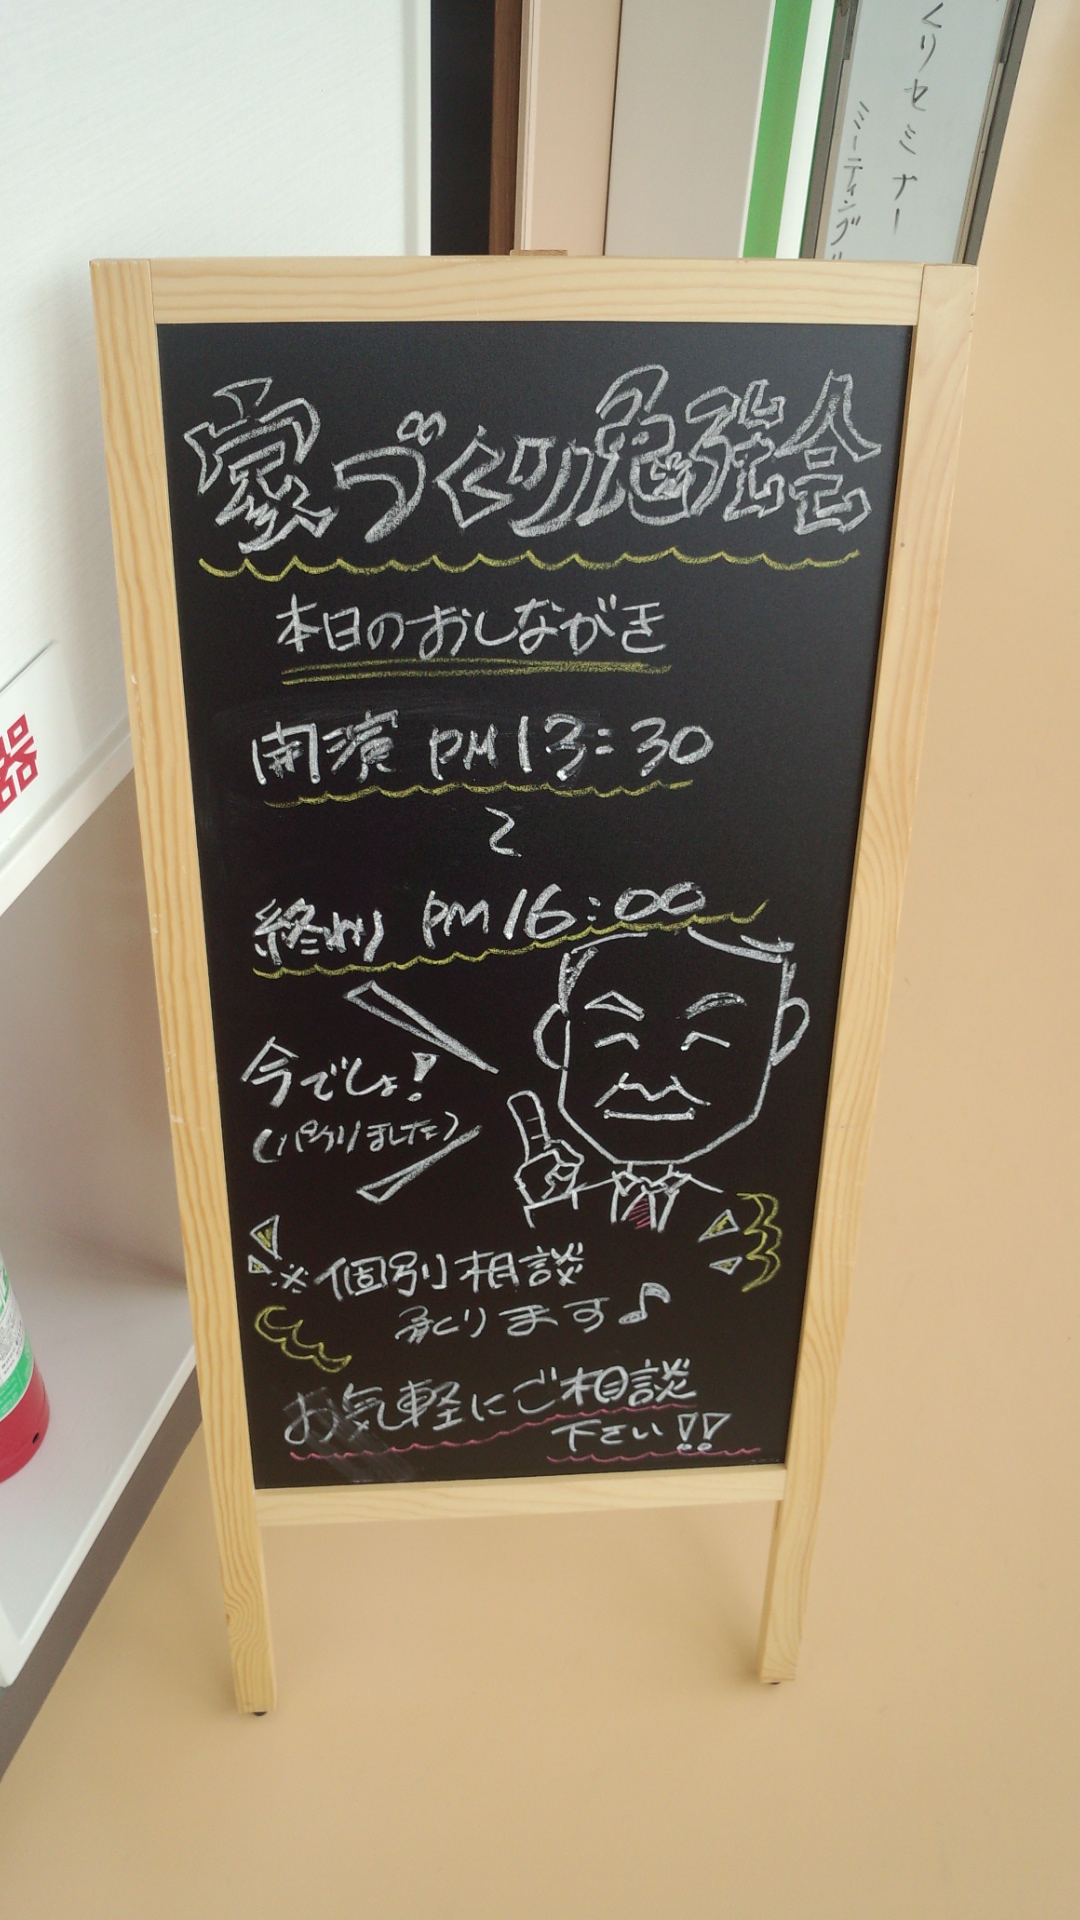 くりセミナー
ミーティング
家づくり勉強会
本日のおしながき
開演 PM13:30
〜
終わり PM16:00
今でしょ!
(パクリました)
※個別相談
承ります♪
お気軽にご相談
下さい!!
器